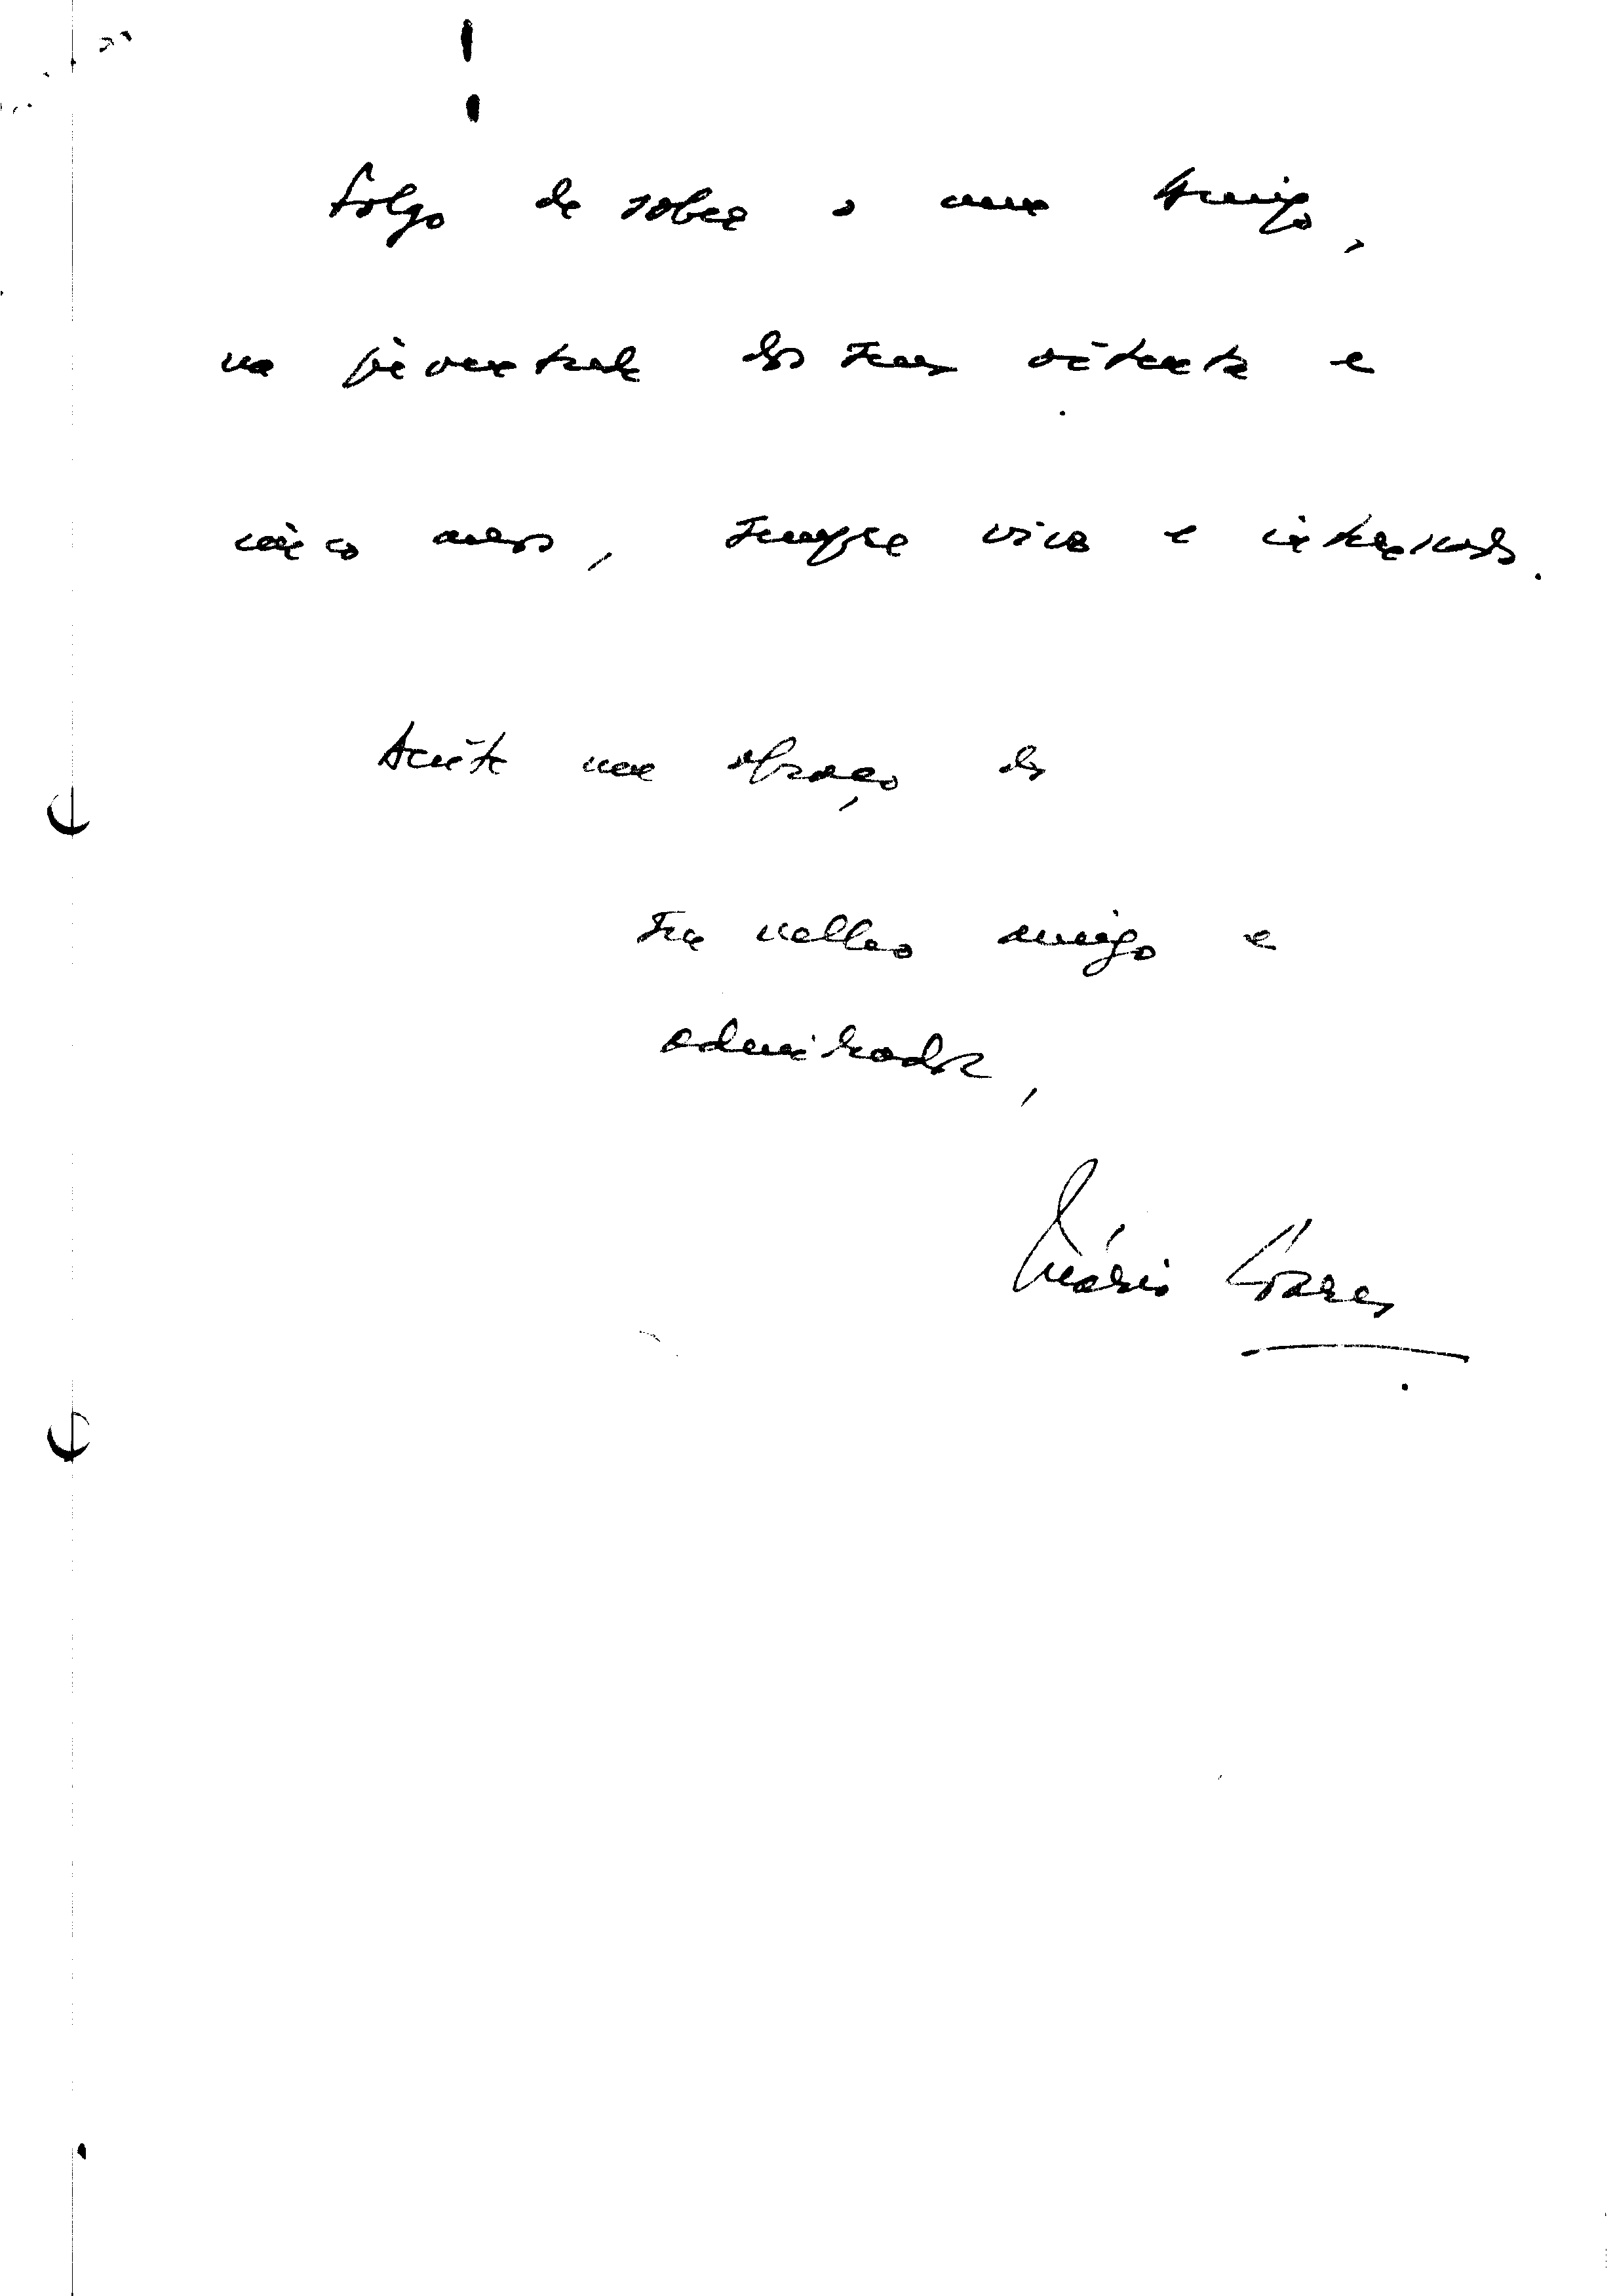 Folgo de saber o meu Amigo,
na juventude dos seus oitenta e
cinco anos, sempre vivo e interessado.
Aceite um abraço do
seu velho amigo e
admirador,
Mário Soares